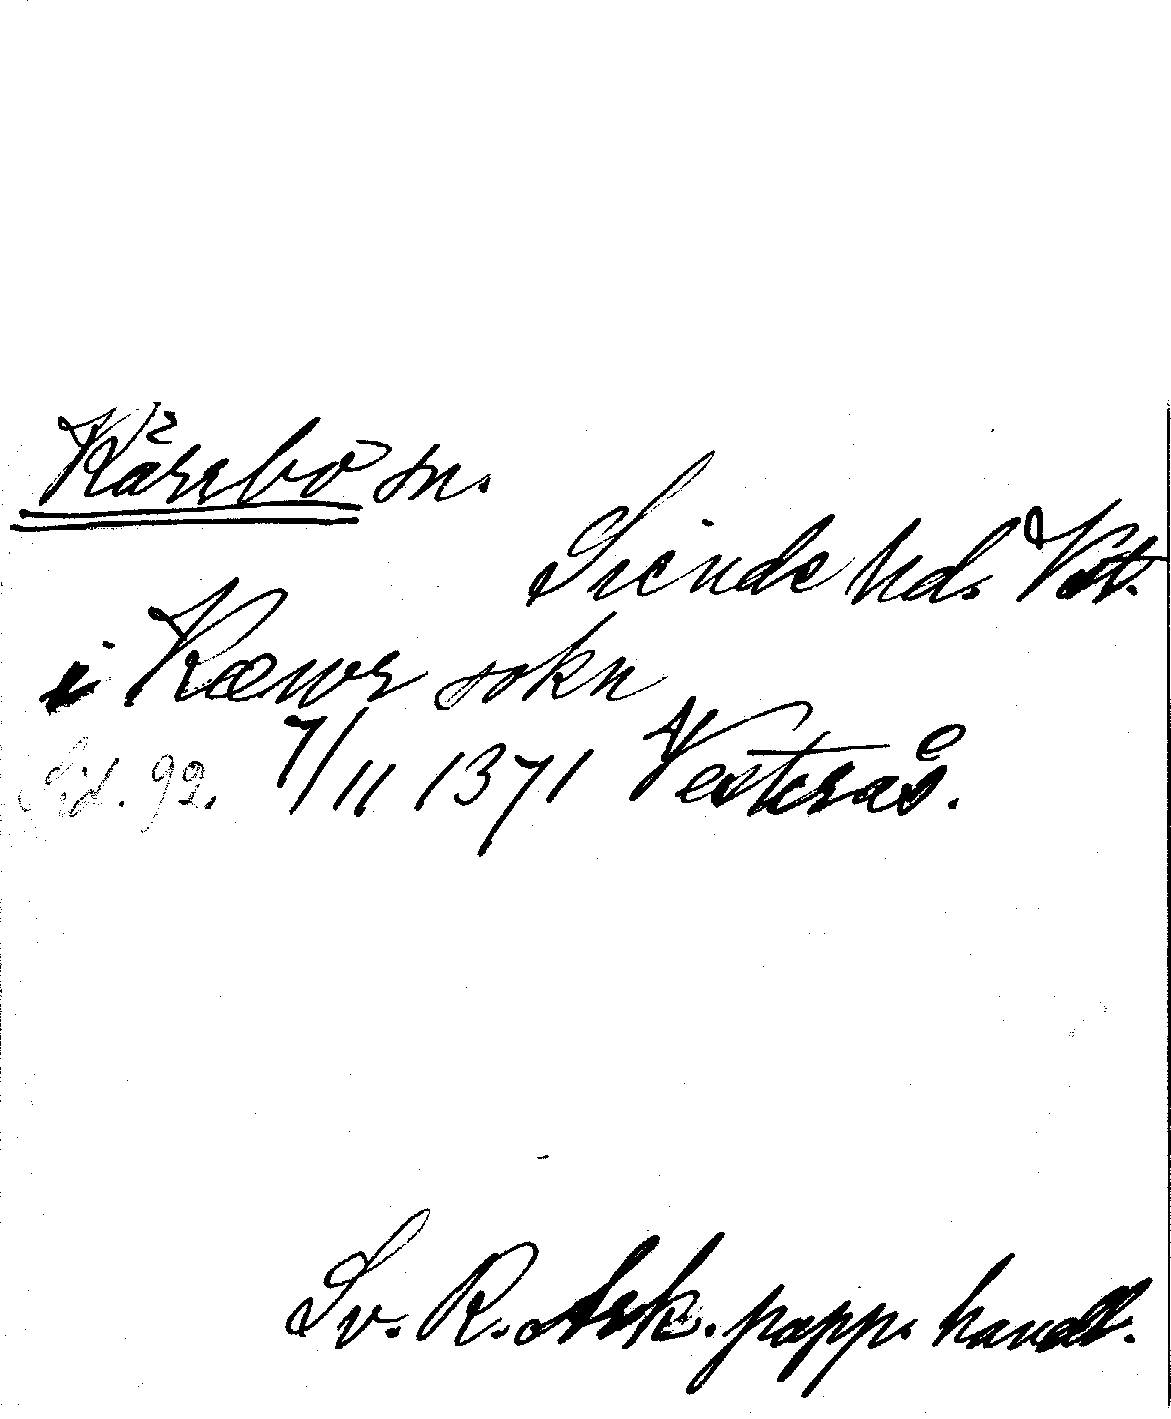 Kärrbo sn.
Siende hd. Vstm.
i Kærvr sokn
Sid. 92. 7/11 1371 Vesterås.
Sv. R. Ark. papp. handl.